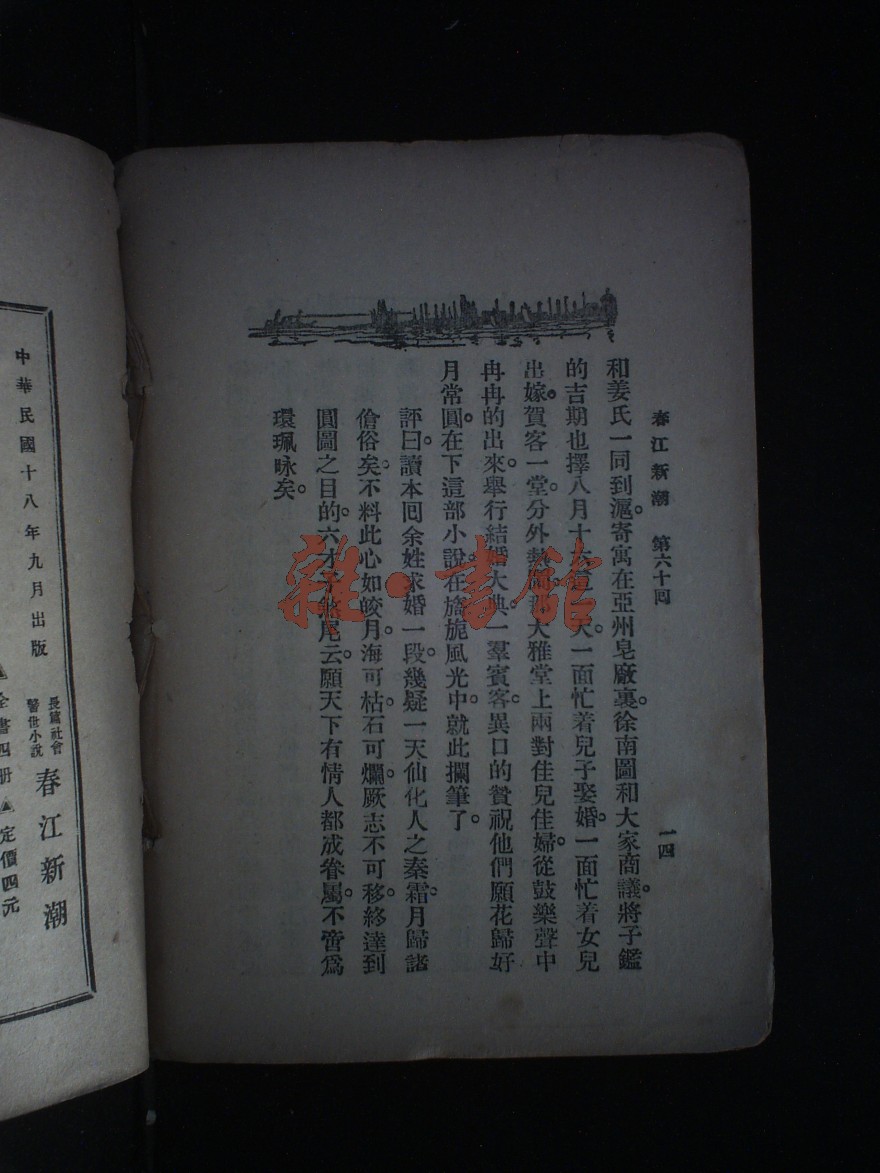 春江新潮　第六十回
一四
和姜氏一同到滬。寄寓在亞州皂廠裏。徐南圖和大家商議。將子鑑
的吉期也擇八月十五這一天。一面忙着兒子娶婚。一面忙着女兒
出嫁。賀客一堂。分外熱鬧。那大雅堂上兩對佳兒佳婦。從鼓樂聲中
冉冉的出來。舉行結婚大典。一羣賓客。異口的贊祝他們願花歸好
月常圓。在下這部小說。在旖旎風光中。就此擱筆了。
評曰。讀本回余姓求婚一段。幾疑一天仙化人之秦霜月歸諸
傖俗矣。不料此心如皎月。海可枯石可爛。厥志不可移。終達到
圓圖之目的。六才子煞尾云。願天下有情人都成眷屬。不啻爲
環珮咏矣。
雜·書館
中華民國十八年九月出版
長篇社會
警世小說
春江新潮
▲全書四册▲定價四元